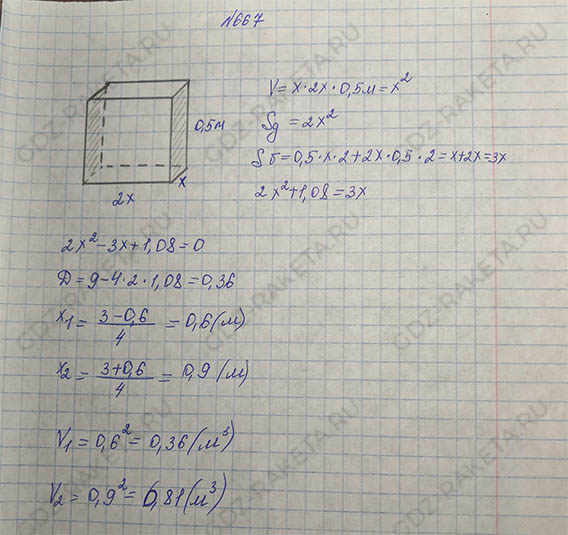 N667
V = x·2x·0,5м = x²
0,5м
Sд = 2x²
Sб = 0,5·x·2+2x·0,5·2 = x+2x = 3x
x
2x²+1,08 = 3x
2x
2x²-3x+1,08 = 0
Д = 9-4·2·1,08 = 0,36
x1 = (3-0,6)/4 = 0,6(м)
x2 = (3+0,6)/4 = 0,9(м)
V1 = 0,6² = 0,36(м³)
V2 = 0,9² = 0,81(м³)
GDZ-RAKETA.RU